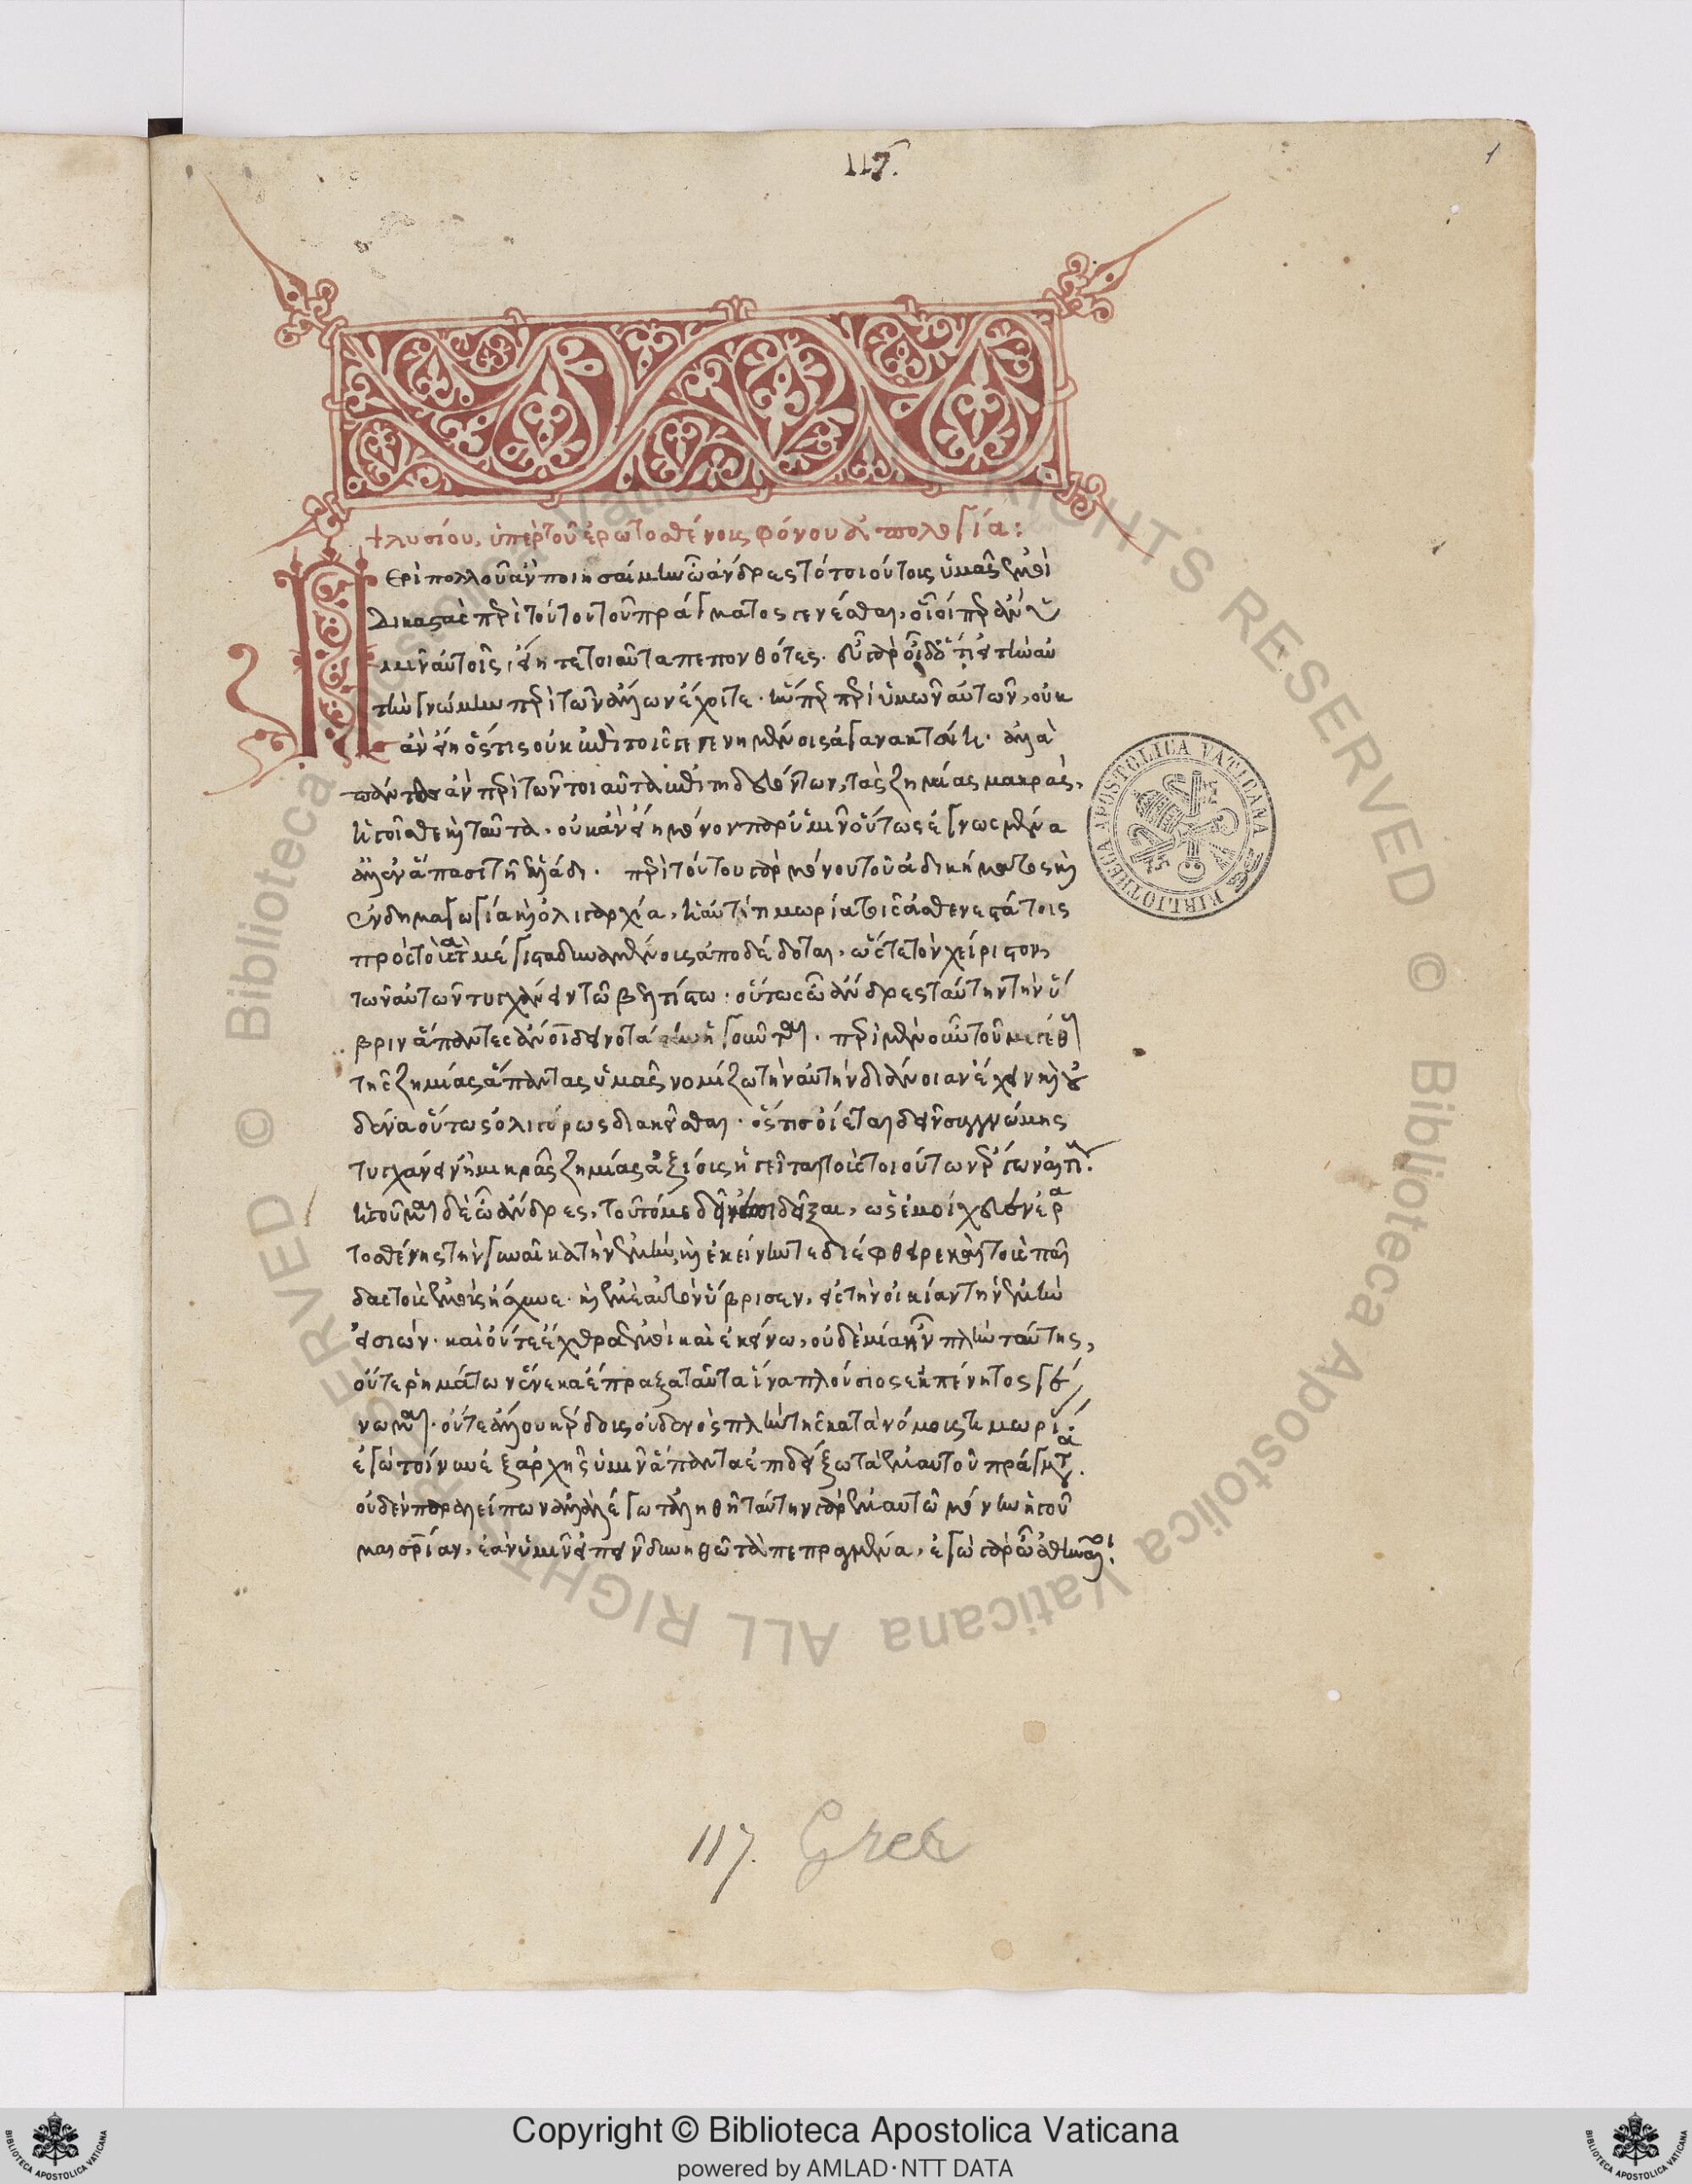 117.
1
+ λυσίου, ὑπὲρ τοῦ ἐρωτοσθένους φόνου ἀπολογία:
Περὶ πολλοῦ ἂν ποιησαίμην ὦ ἄνδρες τὸ τοιούτους ὑμᾶς ἐμοὶ
δικαστὰς περὶ τούτου τοῦ πράγματος γενέσθαι, οἷοί περ ἂν ὑ
μῖν αὐτοῖς εἴητε τοιαῦτα πεπονθότες. εὖ γὰρ οἶδ' ὅτι εἰ τὴν αὐ
τὴν γνώμην περὶ τῶν ἄλλων ἔχοιτε. ἥνπερ περὶ ὑμῶν αὐτῶν, οὐκ
ἂν εἴη ὅστις οὐκ ἐπὶ τοῖς γεγενημένοις ἀγανακτοίη. ἀλλὰ
πάντες ἂν περὶ τῶν τοιαῦτα ἐπιτηδευόντων, τὰς ζημίας μακρὰς,
ἡγοῖσθε καὶ ταῦτα. οὐκ ἂν εἴη μόνον παρ' ὑμῖν οὕτως ἐγνωσμένα
ἀλλ' ἐν ἁπάσῃ τῇ ἑλλάδι. περὶ τούτου γὰρ μόνου τοῦ ἀδικήματος καὶ
ἐν δημοκρατίᾳ καὶ ὀλιγαρχίᾳ, ἡ αὐτὴ τιμωρία τοῖς ἀσθενεστάτοις
πρὸς τοὺς τὰ μέγιστα δυναμένους ἀποδέδοται, ὥστε τὸν χείριστον,
τῶν αὐτῶν τυγχάνειν τῷ βελτίστῳ. οὕτως ὦ ἄνδρες ταύτην τὴν ὕ
βριν ἅπαντες ἄνθρωποι δεινοτάτην ἡγοῦνται. περὶ μὲν οὖν τοῦ μεγέθους
τῆς ζημίας ἅπαντας ὑμᾶς νομίζω τὴν αὐτὴν διάνοιαν ἔχειν καὶ οὐ
δένα οὕτως ὀλιγώρως διακεῖσθαι. ὅστις οἴεται δεῖν συγγνώμης
τυγχάνειν ἢ μικρᾶς ζημίας ἀξίους ἡγεῖται τοὺς τῶν τοιούτων ἔργων αἰτίους.
ἡγοῦμαι δὲ ὦ ἄνδρες, τοῦτό με δεῖν ἐπιδεῖξαι, ὡς ἐμοίχευεν ἐρα
τοσθένης τὴν γυναῖκα τὴν ἐμὴν καὶ ἐκείνην τε διέφθειρε καὶ τοὺς παῖ
δας τοὺς ἐμοὺς ᾔσχυνε. καὶ ἐμὲ αὐτὸν ὕβρισεν, εἰς τὴν οἰκίαν τὴν ἐμὴν
εἰσιών. καὶ οὔτε ἔχθρα ἐμοὶ καὶ ἐκείνῳ, οὐδεμία ἦν πλὴν ταύτης,
οὔτε χρημάτων ἕνεκα ἔπραξα ταῦτα ἵνα πλούσιος ἐκ πένητος γέ
νωμαι. οὔτε ἄλλου κέρδους οὐδενὸς πλὴν τῆς κατὰ νόμους τιμωρίας.
ἐγὼ τοίνυν ἐξ ἀρχῆς ὑμῖν ἅπαντα ἐπιδείξω τὰ ἐμαυτοῦ πράγματα.
οὐδὲν παραλείπων ἀλλὰ λέγω τἀληθῆ ταύτην γὰρ ἐμαυτῷ μόνην ἡγοῦ
μαι σωτηρίαν, ἐὰν ὑμῖν εἰπεῖν δυνηθῶ τὰ πεπραγμένα, ἐγὼ γὰρ ὦ ἀθηναῖοι:
BIBLIOTHECA APOSTOLICA VATICANA
117. Grec
Biblioteca Apostolica Vaticana ALL RIGHTS RESERVED ©
Copyright © Biblioteca Apostolica Vaticana
powered by AMLAD・NTT DATA